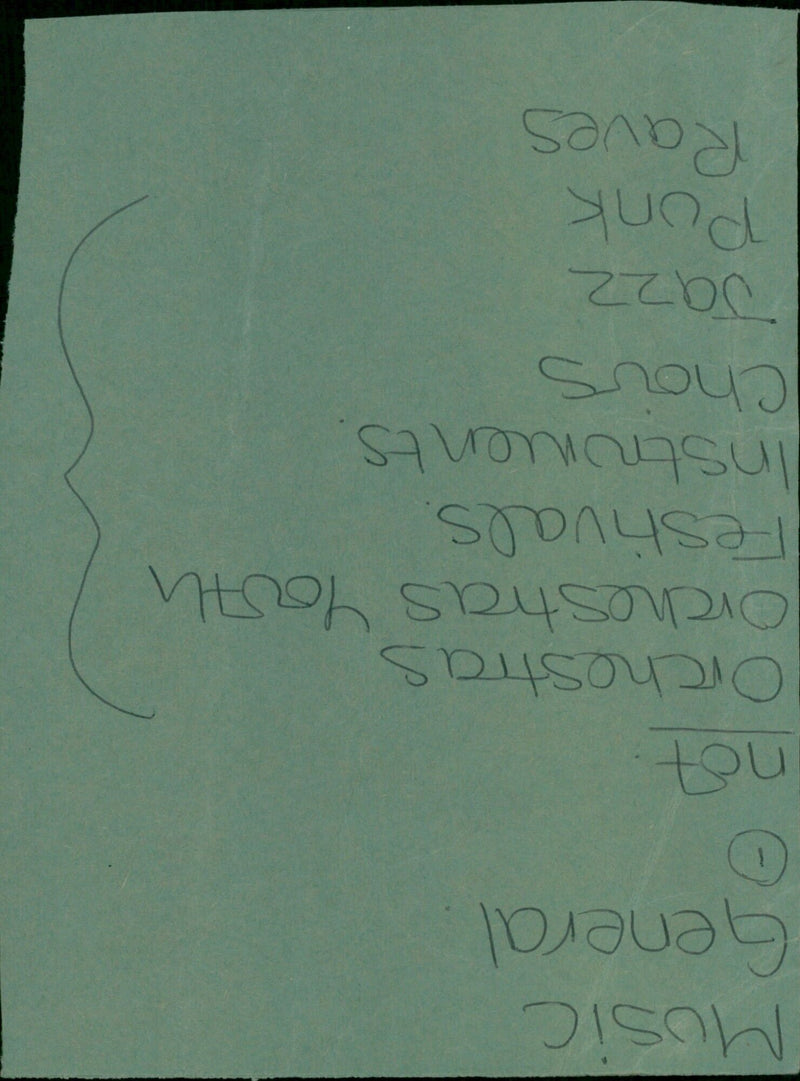 Music
General
①
not
Orchestras
Orchestras Youth
Festivals
Instruments
Choirs
Jazz
Punk
Raves